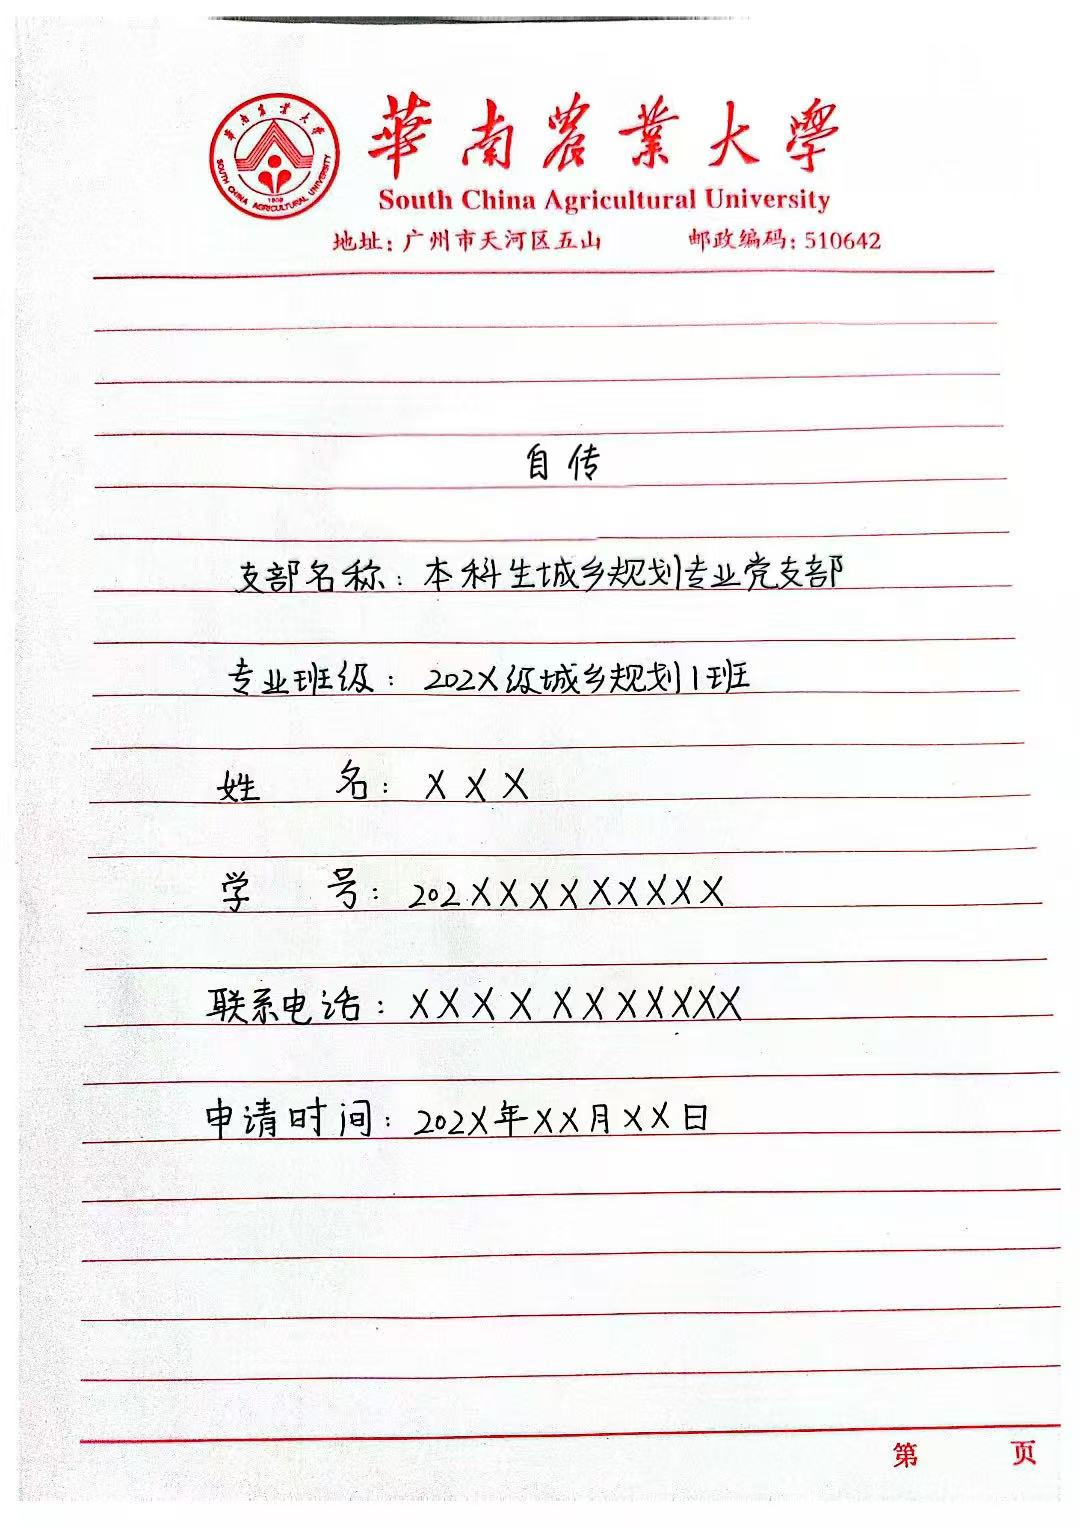 華南農業大學
SOUTH CHINA AGRICULTURAL UNIVERSITY
1909
華南農業大學
South China Agricultural University
地址：广州市天河区五山 邮政编码：510642
自传
支部名称：本科生城乡规划专业党支部
专业班级：202X级城乡规划1班
姓 名：XXX
学 号：202XXXXXXXXX
联系电话：XXXXXXXXXXX
申请时间：202X年XX月XX日
第 页